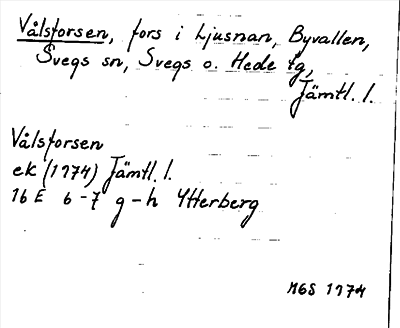 Vålsforsen, fors i Ljusnan, Byvallen,
Svegs sn, Svegs o. Hede tg,
Jämtl. l.
Vålsforsen
ek (1974) Jämtl. l.
16 E 6-7 g-h Ytterberg
MGS 1974